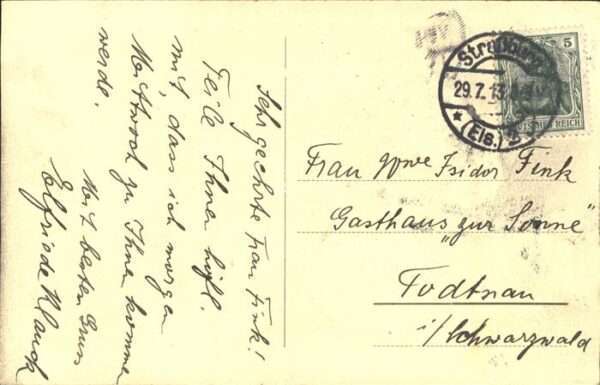 Sehr geehrte Frau Fink!
Teile Ihnen höfl.
mit, dass ich morgen
Mittwoch zu Ihnen komme
werde.
Mit besten Gruss
Elfriede Klauck
Straßburg
29.7.13
* (Els.) 2
5
DEUTSCHES REICH
Frau Wwe Isidor Fink
Gasthaus „zur Sonne"
Todtnau
i/Schwarzwald